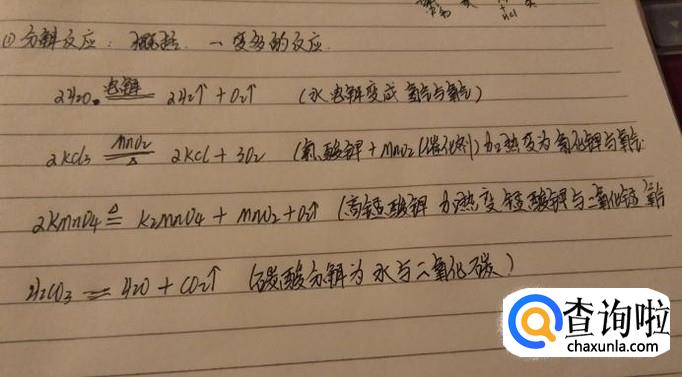 ① 分解反应：概括：一变多的反应.
2H2O 电解 2H2↑ + O2↑ （水电解变成氢气与氧气）
2KCl3 MnO2 △ 2KCl + 3O2 （氯酸钾 + MnO2（催化剂）加热变为氯化钾与氧气
2KMnO4 △ K2MnO4 + MnO2 + O2↑ （高锰酸钾加热变锰酸钾与二氧化锰氧气
H2CO3 = H2O + CO2↑ （碳酸分解为水与二氧化碳）
查询啦
chaxunla.com